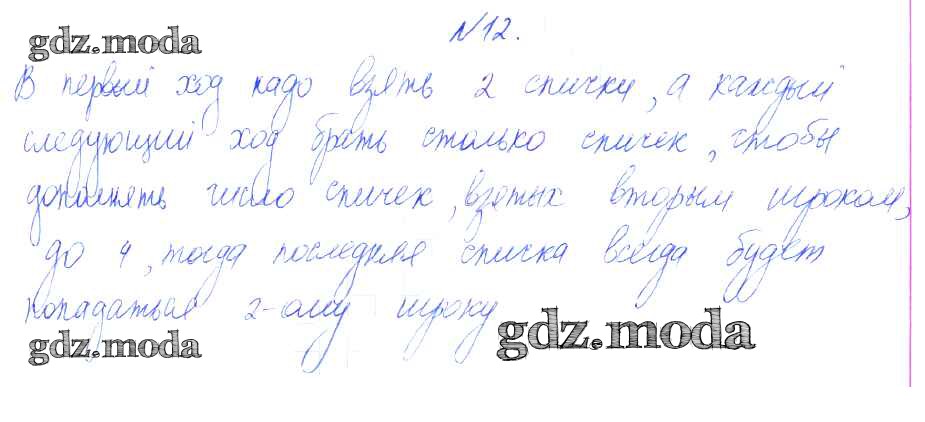 N12.
gdz.moda
В первый ход надо взять 2 спички, а каждый
следующий ход брать столько спичек, чтобы
дополнять число спичек, взятых вторым игроком,
до 4, тогда последняя спичка всегда будет
попадаться 2-ому игроку
gdz.moda
gdz.moda